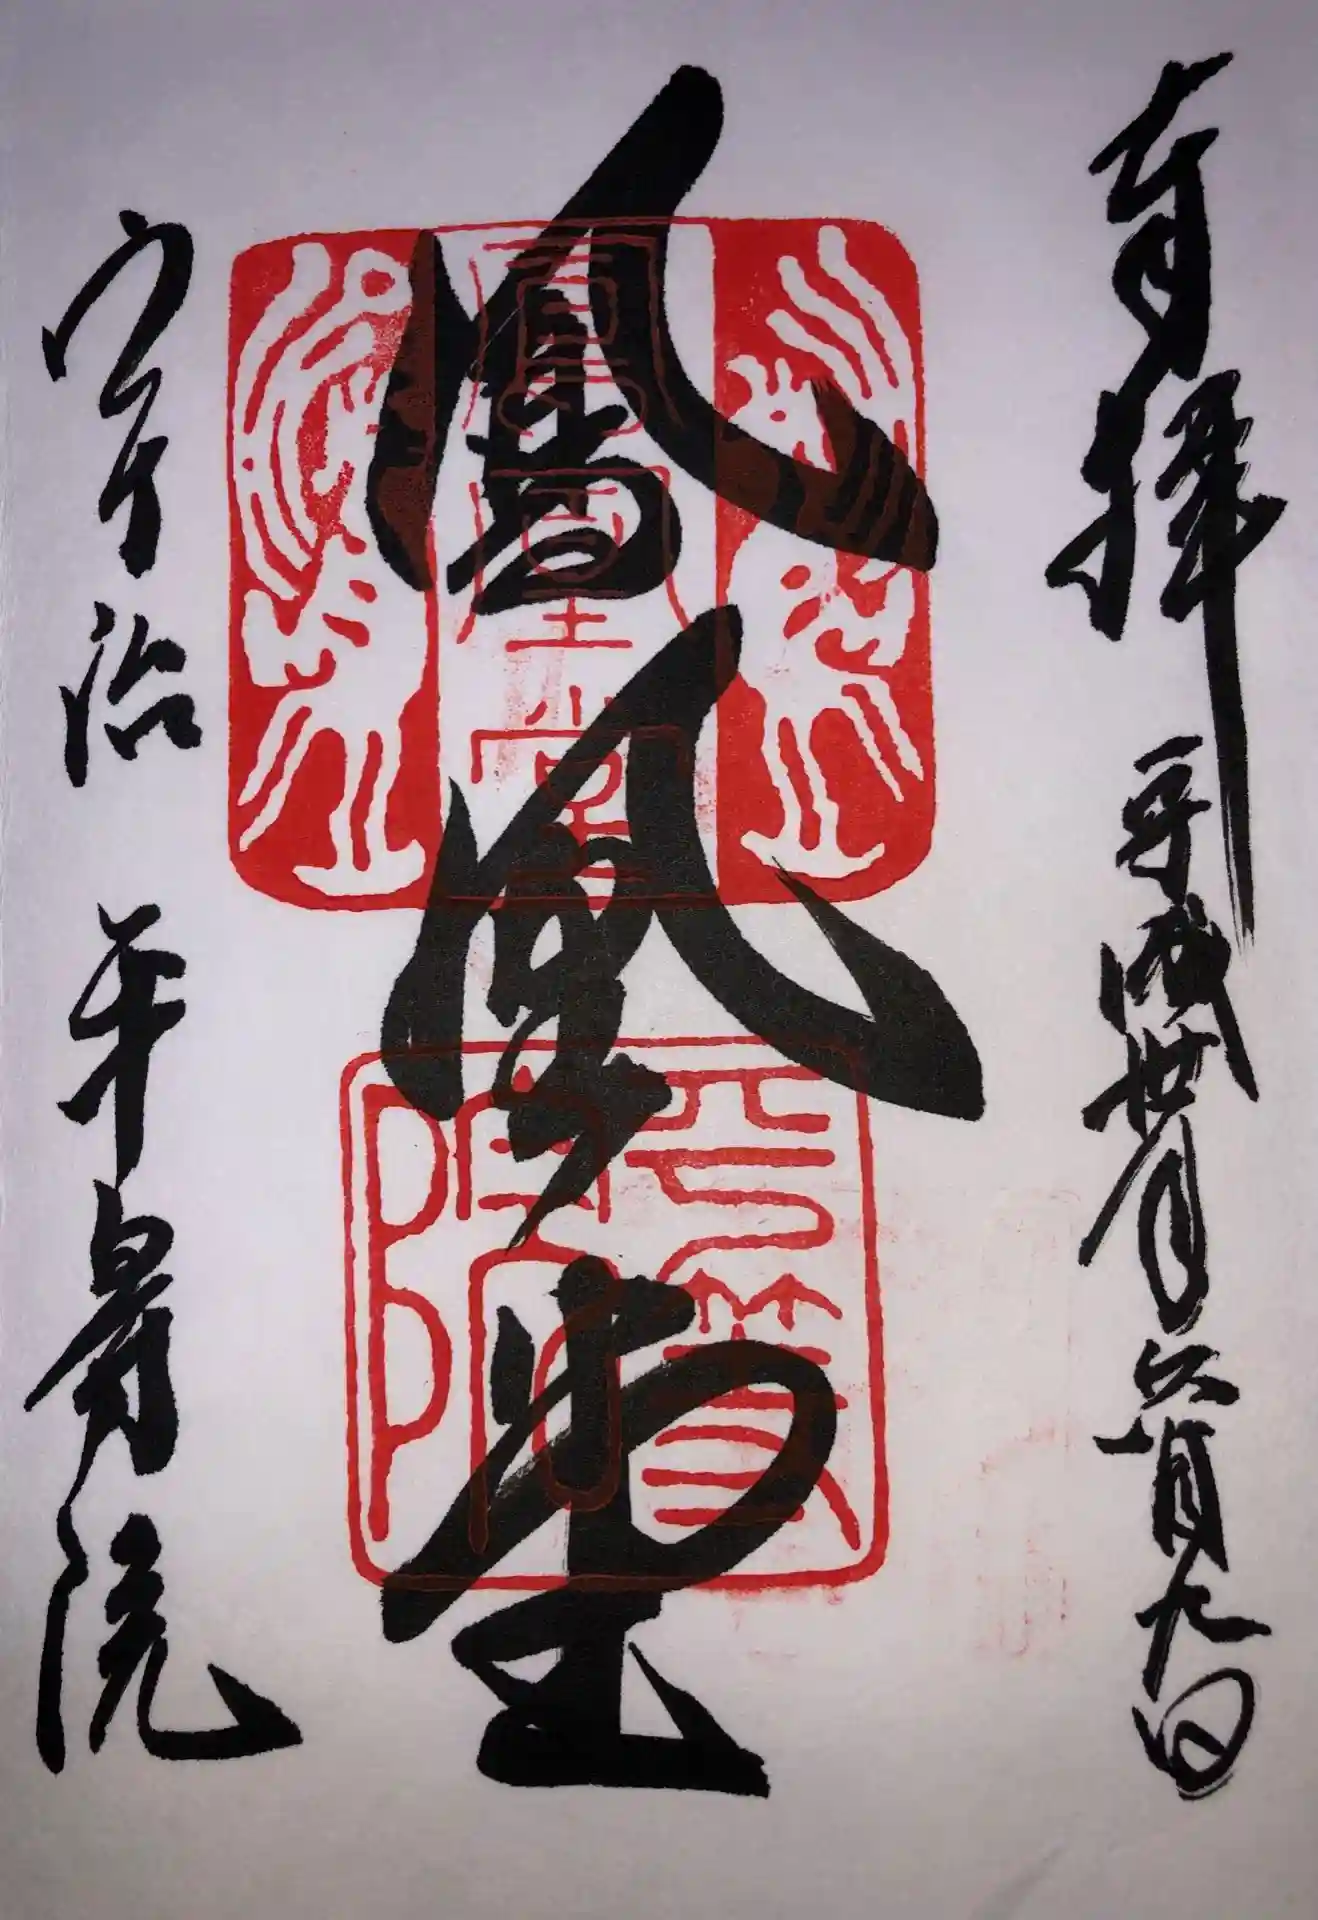 奉拝 平成卅年六月九日
鳳凰堂
宇治 平等院
鳳凰堂
平等院